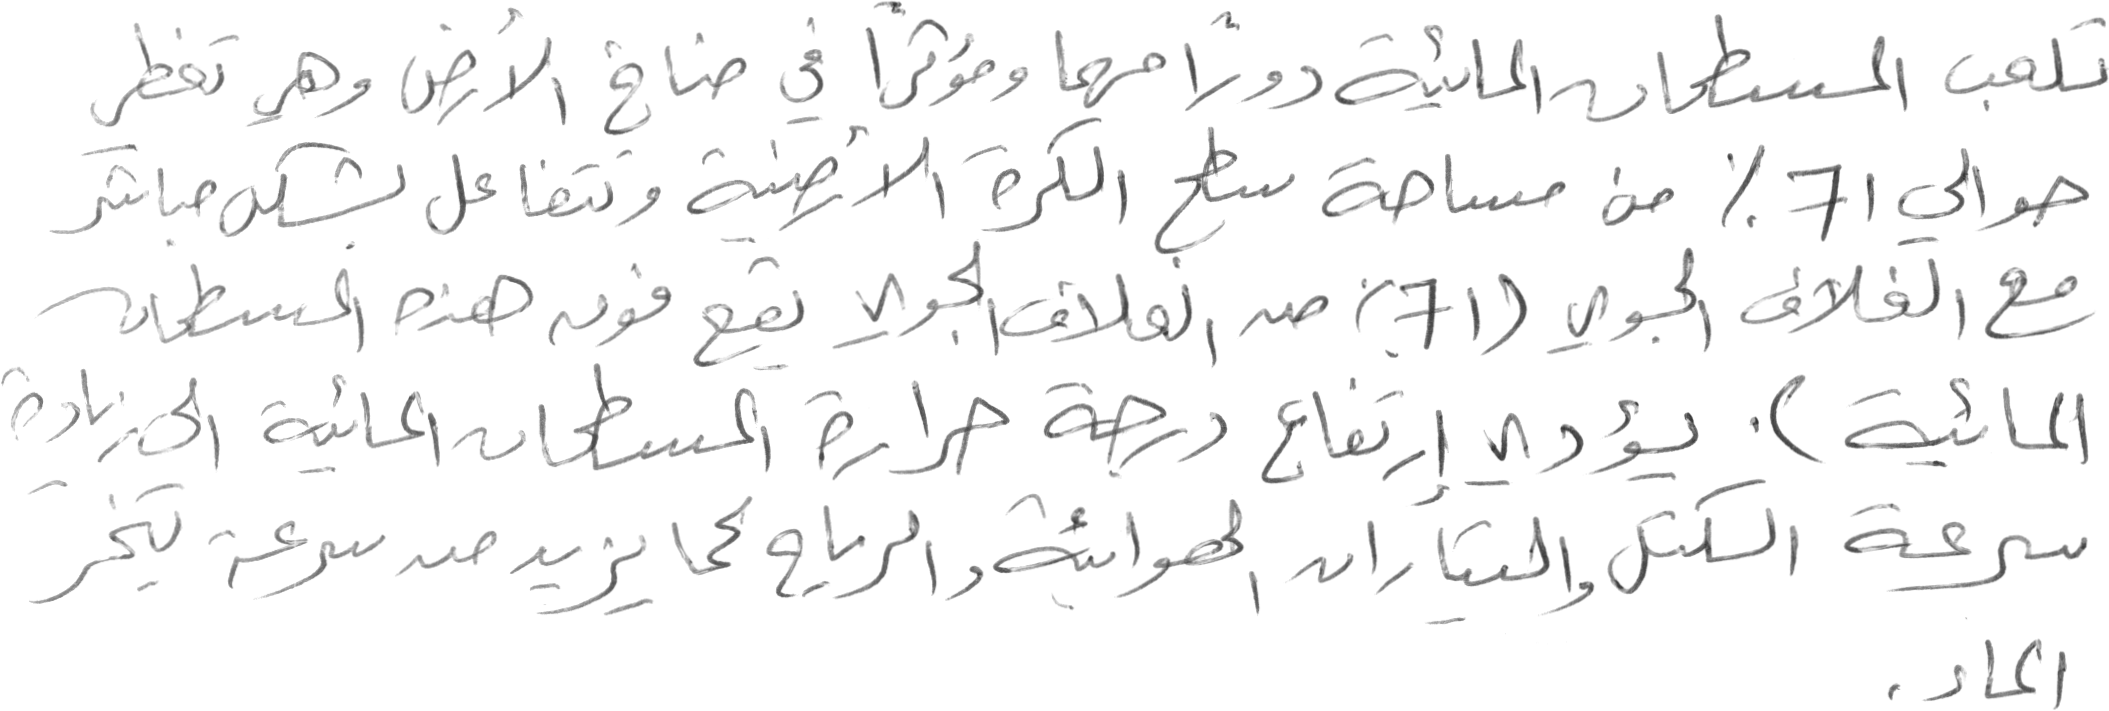 تلعب المسطحات المائية دورًا مهما ومؤثرًا في مناخ الأرض وهي تغطي
حوالي 71٪ من مساحة سطح الكرة الأرضية وتتفاعل بشكل مباشر
مع الغلاف الجوي (71٪ من الغلاف الجوي يقع فوق هذه المسطحات
المائية). يؤدي إرتفاع درجة حرارة المسطحات المائية الى زيادة
سرعة الكتل والتيارات الهوائية والرياح مما يزيد من سرعة تبخر
الماء.